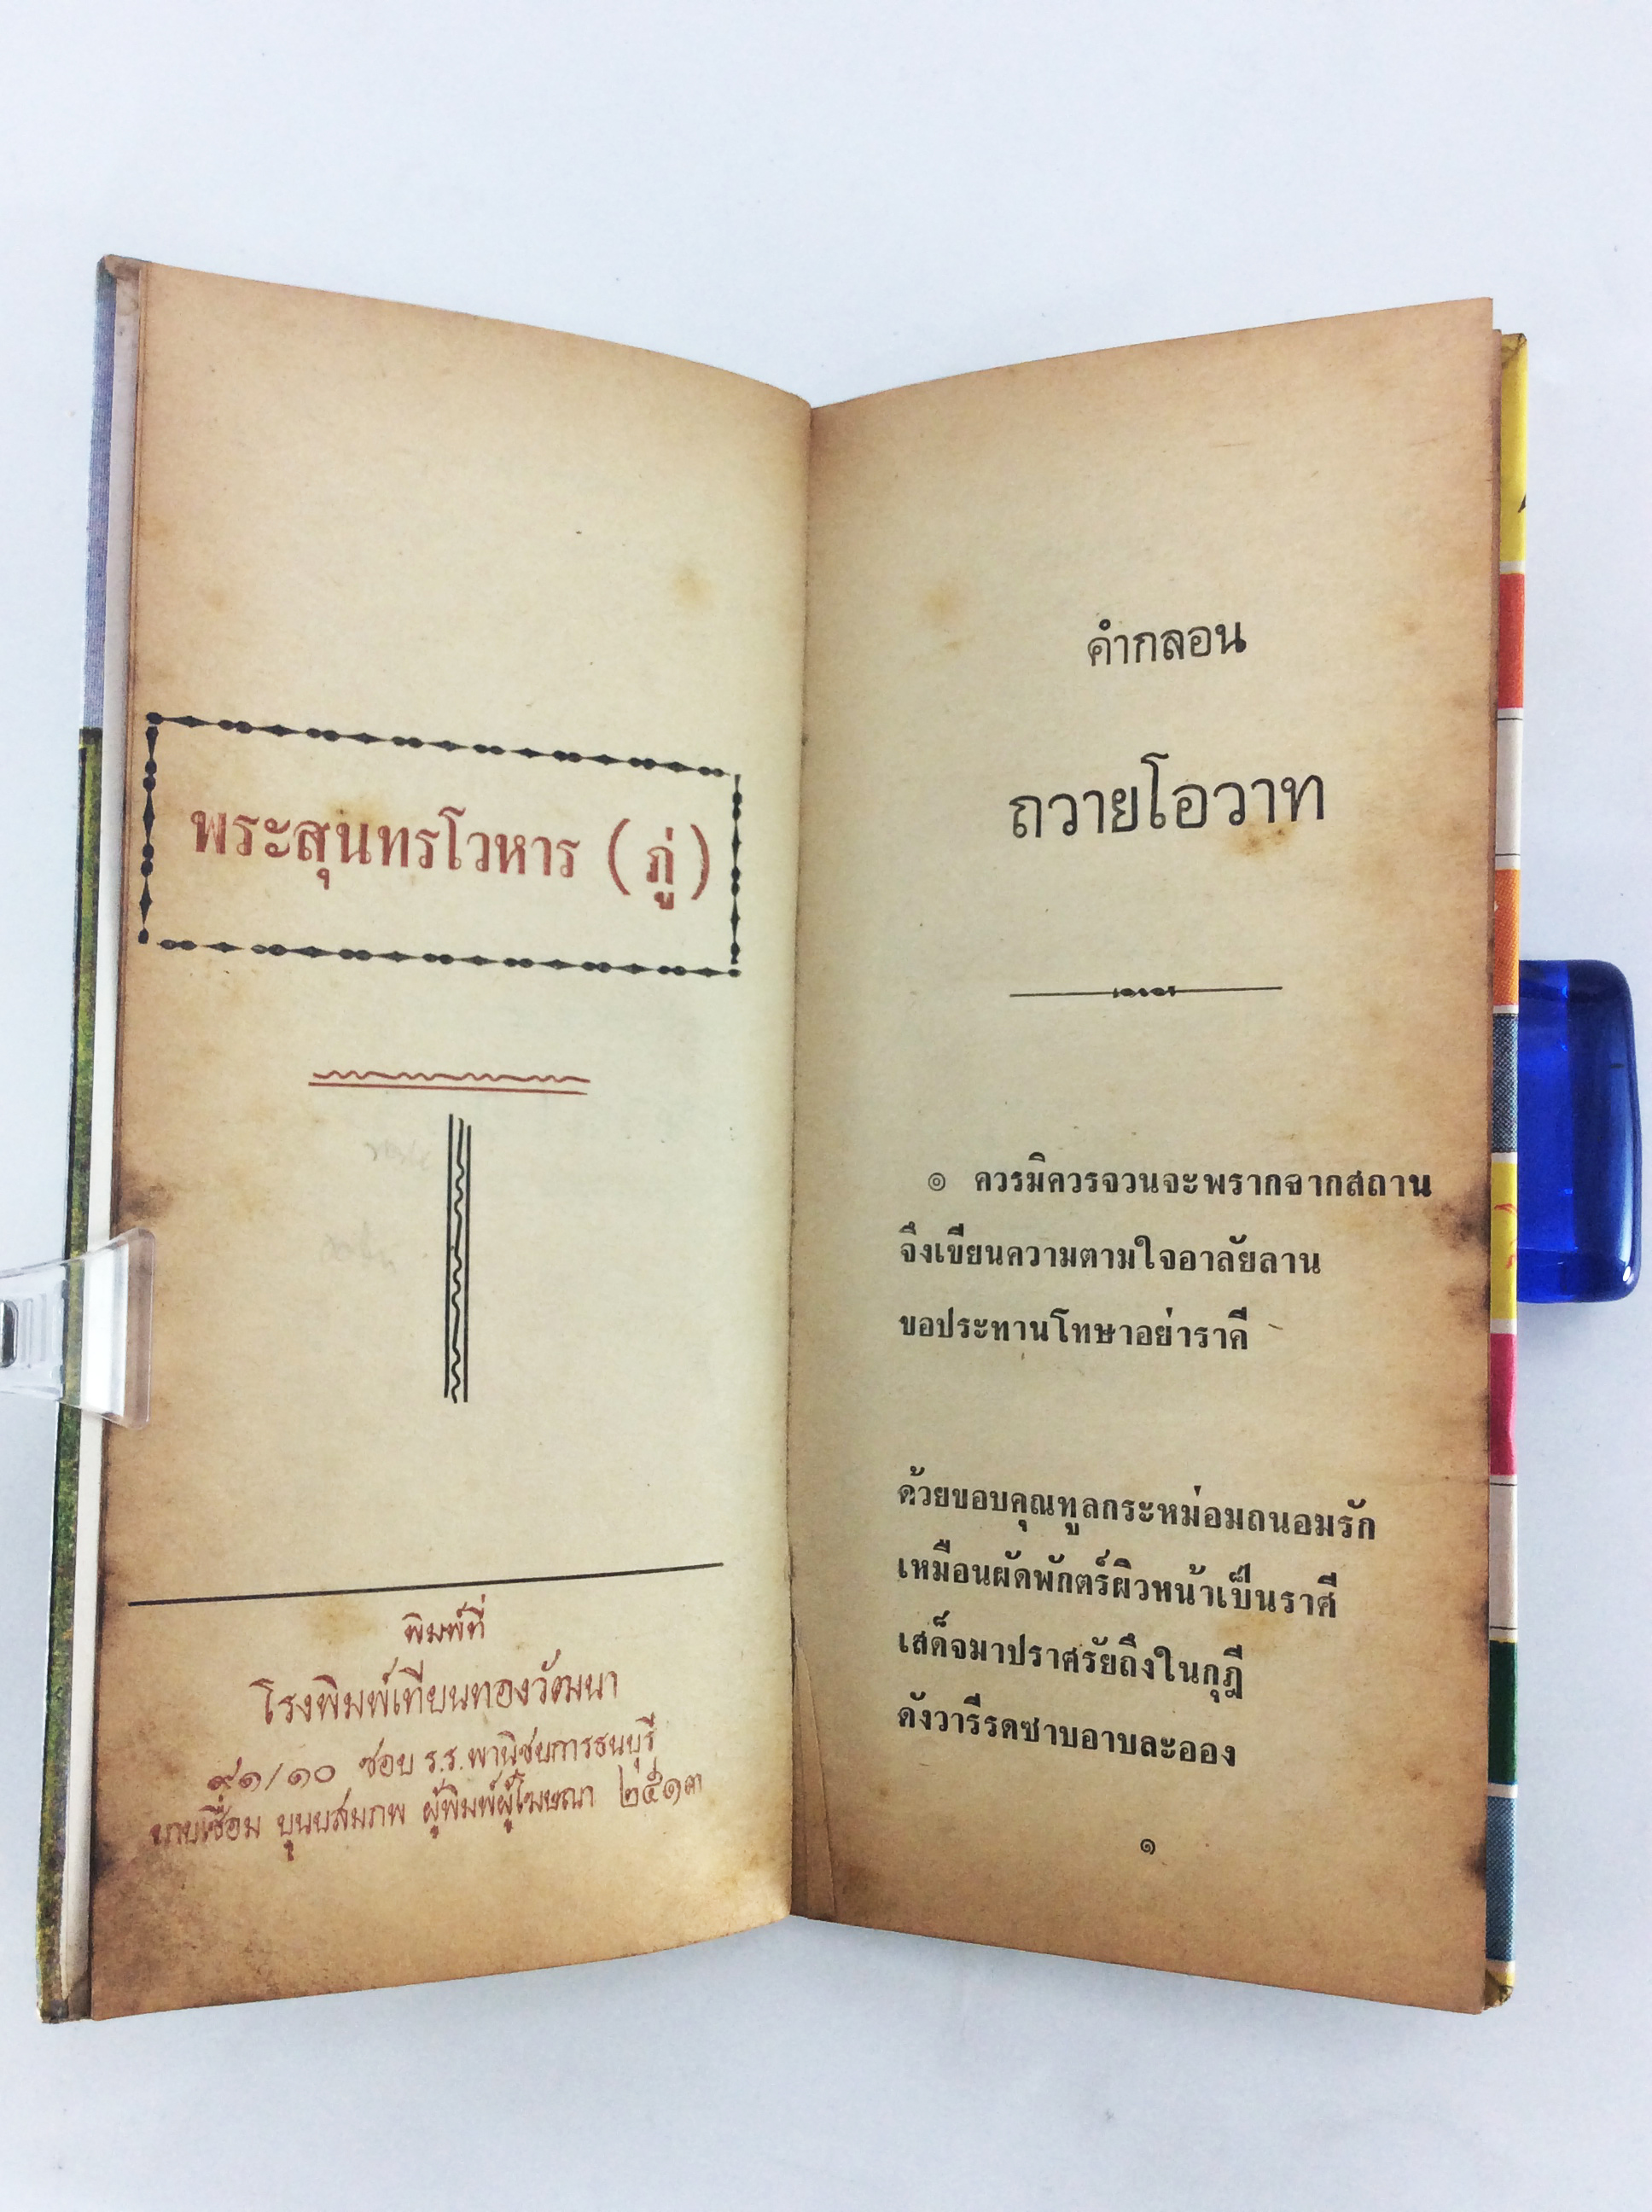 พระสุนทรโวหาร (ภู่)
พิมพ์ที่
โรงพิมพ์เทียนทองวัฒนา
๙๑/๑๐ ซอบ ร.ร.พานิชยการธนบุรี
นายเชื่อม บุนยสมภพ ผู้พิมพ์ผู้โฆษณา ๒๕๑๓
คำกลอน
ถวายโอวาท
๏ ควรมิควรจวนจะพรากจากสถาน
จึงเขียนความตามใจอาลัยลาน
ขอประทานโทษาอย่าราคี
ด้วยขอบคุณทูลกระหม่อมถนอมรัก
เหมือนผัดพักตร์ผิวหน้าเป็นราศี
เสด็จมาปราศรัยถึงในกุฎี
ดังวารีรดซาบอาบละออง
๑